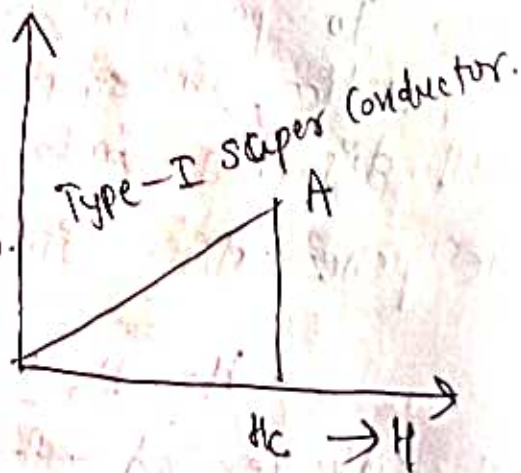 Type-I super conductor.
A
Hc → H